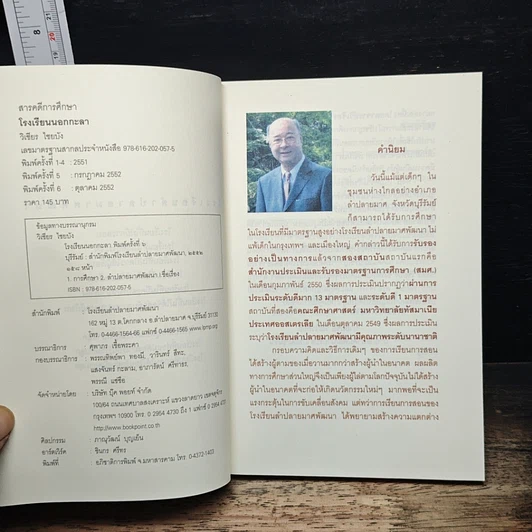 8
20
21
สารคดีการศึกษา
โรงเรียนนอกกะลา
วิเชียร ไชยบัง
เลขมาตรฐานสากลประจำหนังสือ 978-616-202-057-5
พิมพ์ครั้งที่ 1-4 : 2551
พิมพ์ครั้งที่ 5 : กรกฎาคม 2552
พิมพ์ครั้งที่ 6 : ตุลาคม 2552
ราคา 145 บาท
ข้อมูลทางบรรณานุกรม
วิเชียร ไชยบัง
โรงเรียนนอกกะลา. พิมพ์ครั้งที่ ๖
บุรีรัมย์ : สำนักพิมพ์โรงเรียนลำปลายมาศพัฒนา, ๒๕๕๒
หน้า
1. การศึกษา 2. ลำปลายมาศพัฒนา I.ชื่อเรื่อง
ISBN : 978-616-202-057-5
สำนักพิมพ์ : โรงเรียนลำปลายมาศพัฒนา
162 หมู่ 13 ต.โคกกลาง อ.ลำปลายมาศ จ.บุรีรัมย์ 31130
โทร. 0-4466-1564-66 แฟกซ์ 0-4466-1565 www.lpmp.org
บรรณาธิการ : ศุพากร เชื้อพระคา
กองบรรณาธิการ : พรรณทิพย์ภา ทองมี, วารินทร์ สีทะ,
แสงจันทร์ กะลาม, อาภารัตน์ ศรีทาร,
พรรณี แซ่ซือ
จัดจำหน่ายโดย : บริษัท บุ๊ค พอยท์ จำกัด
100/64 ถนนเทศบาลสงเคราะห์ แขวงลาดยาว เขตจตุจักร
กรุงเทพฯ 10900 โทร 0 2954 4730 ถึง 1 แฟกซ์ 0 2954
http://www.bookpoint.co.th
ศิลปกรรม : ภาณุวัฒน์ บุญเย็น
อาร์ตเวิร์ค : ชินกร ศรีทร
พิมพ์ที่ : อภิชาติการพิมพ์ จ.มหาสารคาม โทร 0-4372-1403
คำนิยม
วันนี้แม้แต่เด็กๆ ใน
ชุมชนห่างไกลอย่างอำเภอ
ลำปลายมาศ จังหวัดบุรีรัมย์
ก็สามารถได้รับการศึกษา
ในโรงเรียนที่มีมาตรฐานสูงอย่างโรงเรียนลำปลายมาศพัฒนา ไม่
แพ้เด็กในกรุงเทพฯ และเมืองใหญ่ คำกล่าวนี้ได้รับการรับรอง
อย่างเป็นทางการแล้วจากสองสถาบัน สถาบันแรกคือ
สำนักงานประเมินและรับรองมาตรฐานการศึกษา (สมศ.)
ในเดือนกุมภาพันธ์ 2550 ซึ่งผลการประเมินปรากฏว่าผ่านการ
ประเมินระดับดีมาก 13 มาตรฐาน และระดับดี 1 มาตรฐาน
สถาบันที่สองคือคณะศึกษาศาสตร์ มหาวิทยาลัยทัสมาเนีย
ประเทศออสเตรเลีย ในเดือนตุลาคม 2549 ซึ่งผลการประเมิน
ระบุว่าโรงเรียนลำปลายมาศพัฒนามีคุณภาพระดับนานาชาติ
กรอบความคิดและวิธีการเดิมๆ ของการเรียนการสอน
ได้สร้างผู้ตามของเมื่อวานมากกว่าสร้างผู้นำในอนาคต ผลผลิต
ทางการศึกษาส่วนใหญ่จึงเป็นเพียงผู้ไล่ตามโลกปัจจุบันไม่ได้สร้าง
ผู้นำในอนาคตที่จะก่อให้เกิดนวัตกรรมใหม่ๆ มากพอที่จะเป็น
แรงกระตุ้นในการขับเคลื่อนสังคม แต่ทว่าการเรียนการสอนของ
โรงเรียนลำปลายมาศพัฒนา ได้พยายามสร้างความแตกต่าง